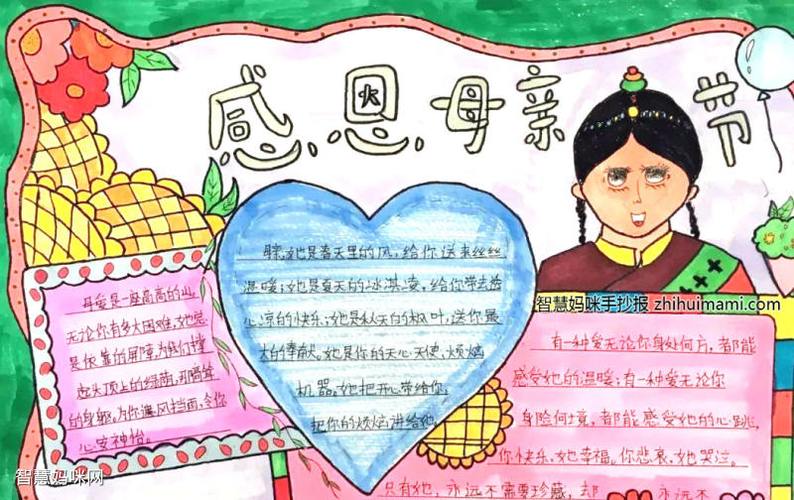 感恩母亲节
躲,她是春天里的风,给你送来丝丝
温暖;她是夏天的冰淇凌,给你带去沁
心凉的快乐;她是秋天的枫叶,送你最
大的奉献。她是你的天心天使,烦恼
机器。她把开心带给你,
把你的烦恼,讲给她
母爱是一座高高的山,
无论你有多大困难,她总
是依靠的屏障,为你们撑
起头顶上的绿荫,
的身躯,为你遮风挡雨,令你
心安神怡。
智慧妈咪手抄报 zhihuimami.com
有一种爱无论你身处何方,都能
感受她的温暖;有一种爱无论你
身险何境,都能感受她的心跳,
你快乐,她幸福。你悲哀,她哭泣。
只有她,永远不需要珍藏,却
永远不
智慧妈咪网